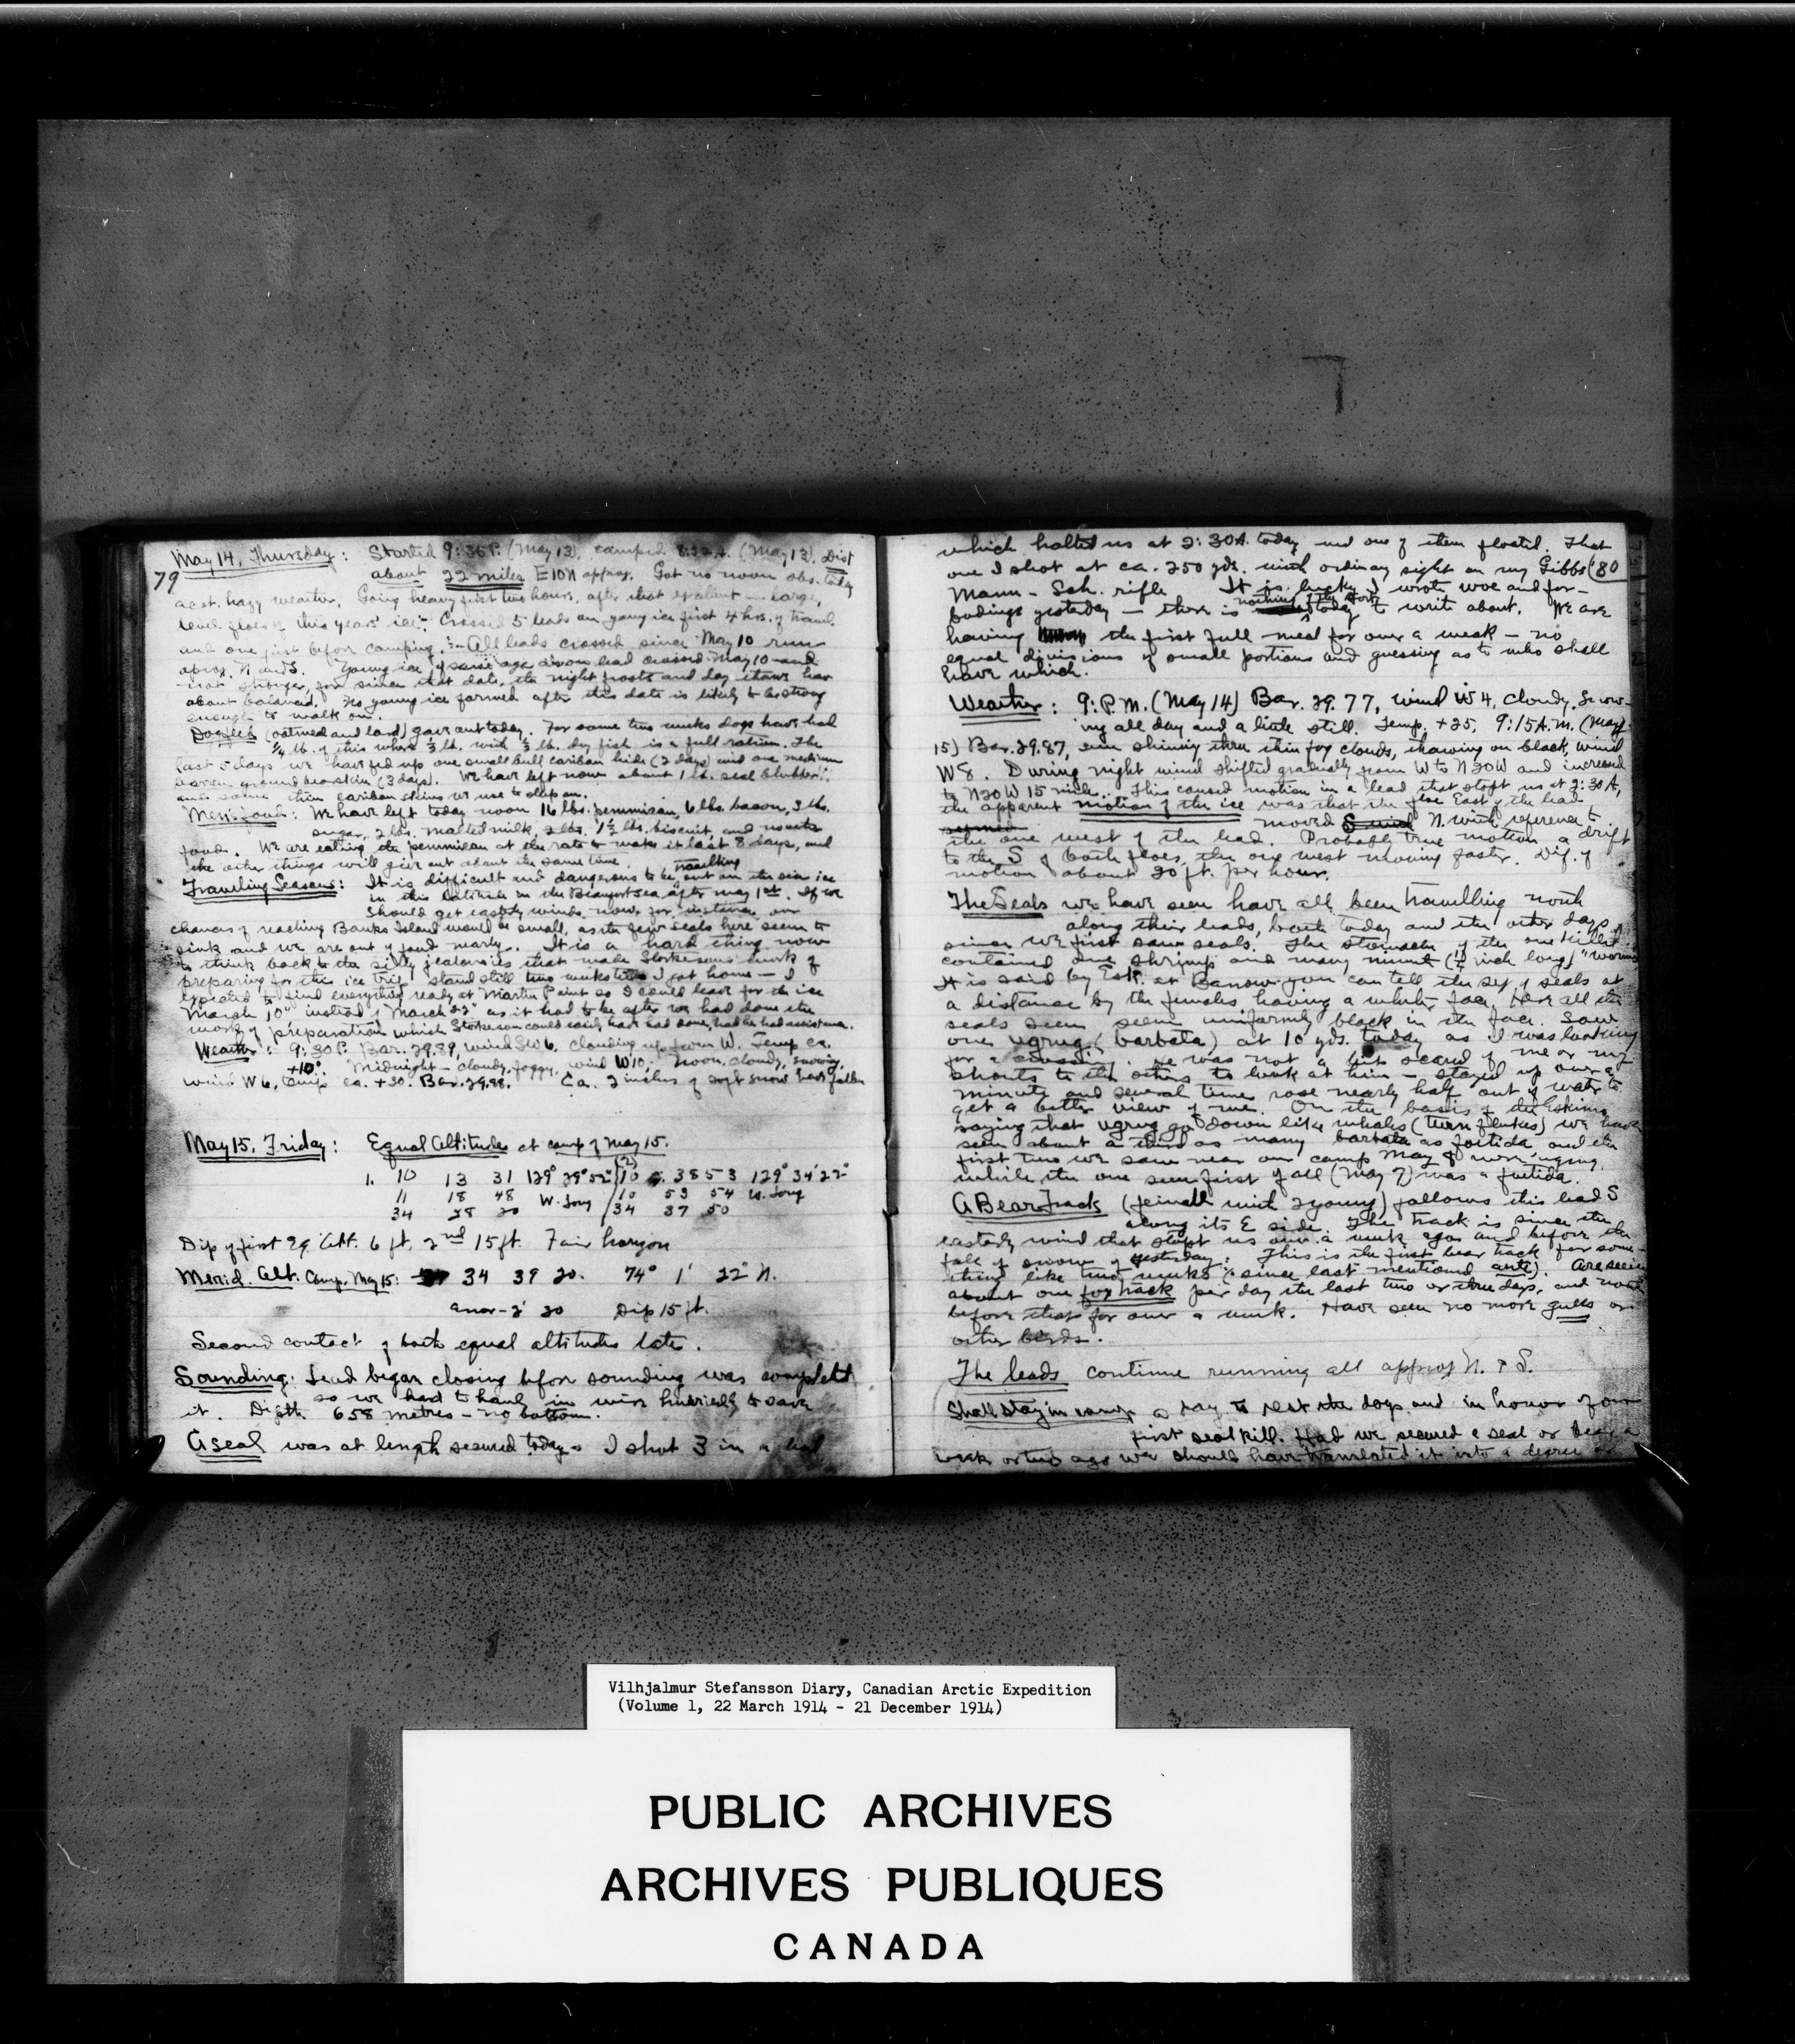 May 14, Thursday: Started 9:36 P. (May 13), camped 8:32 A. (May 13), Dist
79
about 22 miles E10N approx. Got no noon obs. today
acct. hazy weather. Going heavy first two hours, after that excellent — large,
level floes of this years' ice. Crossed 5 leads on young ice first 4 hrs. of travel
and one just before camping. All leads crossed since May 10 run
aprox. N and S. Young ice of same age as on lead crossed May 10 and
not stronger, for since that date, the night frosts and day thaws have
about balanced. No young ice formed after this date is likely to be strong
enough to walk on.
Dogfeed (oatmeal and lard) gave out today. For some two weeks dogs have had
¼ lb. of this where ⅓ lb. with ⅓ lb. dry fish is a full ration. The
last 5 days we have fed up one small bull caribou hide (2 days) and one medium
barren ground bearskin (3 days). We have left now about 1 lb. seal blubber
and some thin caribou skins we use to sleep on.
Mens food: We have left today noon 16 lbs. pemmican, 6 lbs. bacon, 3 lbs.
sugar, 2 lbs. malted milk, 1½ lbs. biscuit, and no other
food. We are eating the pemmican at the rate to make it last 8 days, and
the other things will give out about the same time.
travelling
Travelling Season: It is difficult and dangerous to be out on the sea ice
in this latitude in the Beaufort Sea after May 1st. If we
should get easterly winds now, for instance, our
chances of reaching Banks Island would be small, as the few seals here seem to
sink and we are out of food nearly. It is a hard thing now
to think back to the silly jealousies that made Storkerson's work of
preparing for the ice trip stand still two weeks till I got home — I
expected to find everything ready at Martin Point so I could leave for the ice
"March 10" instead of "March 22" as it had to be after we had done the
work of preparation which Storkerson could easily have had done, had he had assistance.
Weather: 9:30 P. Bar. 29.89, wind SW 6, clouding up from W. Temp ca.
+10°. Midnight — cloudy, foggy, wind W 10; Noon, cloudy, snowing,
wind W 6, temp. ca. +30. Bar. 29.98. Ca. 2 inches of soft snow has fallen
May 15, Friday: Equal Altitudes at camp of May 15.
1. 10 13 31 129° 29' 52" (2) 10 38 53 129° 34' 22"
11 18 48 W. Long 10 59 54 W. Long
34 28 20 34 37 50
Dip of first Eq. Alt. 6 ft, 2nd 15 ft. Fair horizon
Merid. Alt. Camp, May 15: 34 39 20. 74° 1' 22" N.
error -2' 20 Dip 15 ft.
Second contact of both equal altitudes late.
Sounding: Lead began closing before sounding was completed
so we had to haul in wire hurriedly to save
it. Depth 658 metres — no bottom.
A seal was at length secured today. I shot 3 in a lead
which halted us at 2:30 A. today and one of them floated. That
one I shot at ca. 250 yds. with ordinary sight on my Gibbs (80
Mann-Sch. rifle. It is lucky I wrote woe and for-
nothing of the sort
bodings yesterday — there is today to write about. We are
having the first full meal for over a week — no
equal divisions of small portions and guessing as to who shall
have which.
Weather: 9: P.M. (May 14) Bar. 29.77, wind W 4, cloudy. Snow-
ing all day and a little still. Temp. +25, 9:15 A.M. (May
15) Bar. 29.87, sun shining thru thin fog clouds, thawing on black, wind
W 8. During night wind shifted gradually from W to N20W and increased
to N20W 15 miles. This caused motion in a lead that stopt us at 2:30 A,
the apparent motion of the ice was that the floe East of the lead
moved N. with reference to
the one west of the lead. Probably true motion a drift
to the S of both floes, the one west moving faster. Dif. of
motion about 20 ft. per hour.
The Seals we have seen have all been travelling north
along their leads, both today and the other days
since we first saw seals. The stomach of the one killed
contained one shrimp and many minute (¼ inch long) "worms
It is said by Esk. at Barrow you can tell the sex of seals at
a distance by the females having a whiter face. Here all the
seals seen seem uniformly black in the face. Saw
one ugrug (barbata) at 10 yds. today as I was looking
for a crossing. He was not a bit scared of me or my
shouts to the others to look at him — stayed up over a
minute and several times rose nearly half out of water to
get a better view of me. On the basis of the Eskimo
saying that ugrug go down like whales (turn flukes) we have
seen about a third as many barbata as foetida and the
first two we saw near our camp May 8 were ugrug,
while the one seen first of all (May 7) was a foetida.
A Bear Track (female with 2 young) follows this lead S
along its E side. The track is since the
easterly wind that stopt us over a week ago and before the
fall of snow of yesterday. This is the first bear track for some-
thing like two weeks (since last mentioned ante). Are seeing
about one fox track per day the last two or three days, and none
before that for over a week. Have seen no more gulls or
other birds.
The leads continue running all approx N. & S.
Shall stay in camp a day to rest the dogs and in honor of our
first seal kill. Had we secured a seal or bear a
week or two ago we should have translated it into a degree or
Vilhjalmur Stefansson Diary, Canadian Arctic Expedition
(Volume 1, 22 March 1914 - 21 December 1914)
PUBLIC ARCHIVES
ARCHIVES PUBLIQUES
CANADA